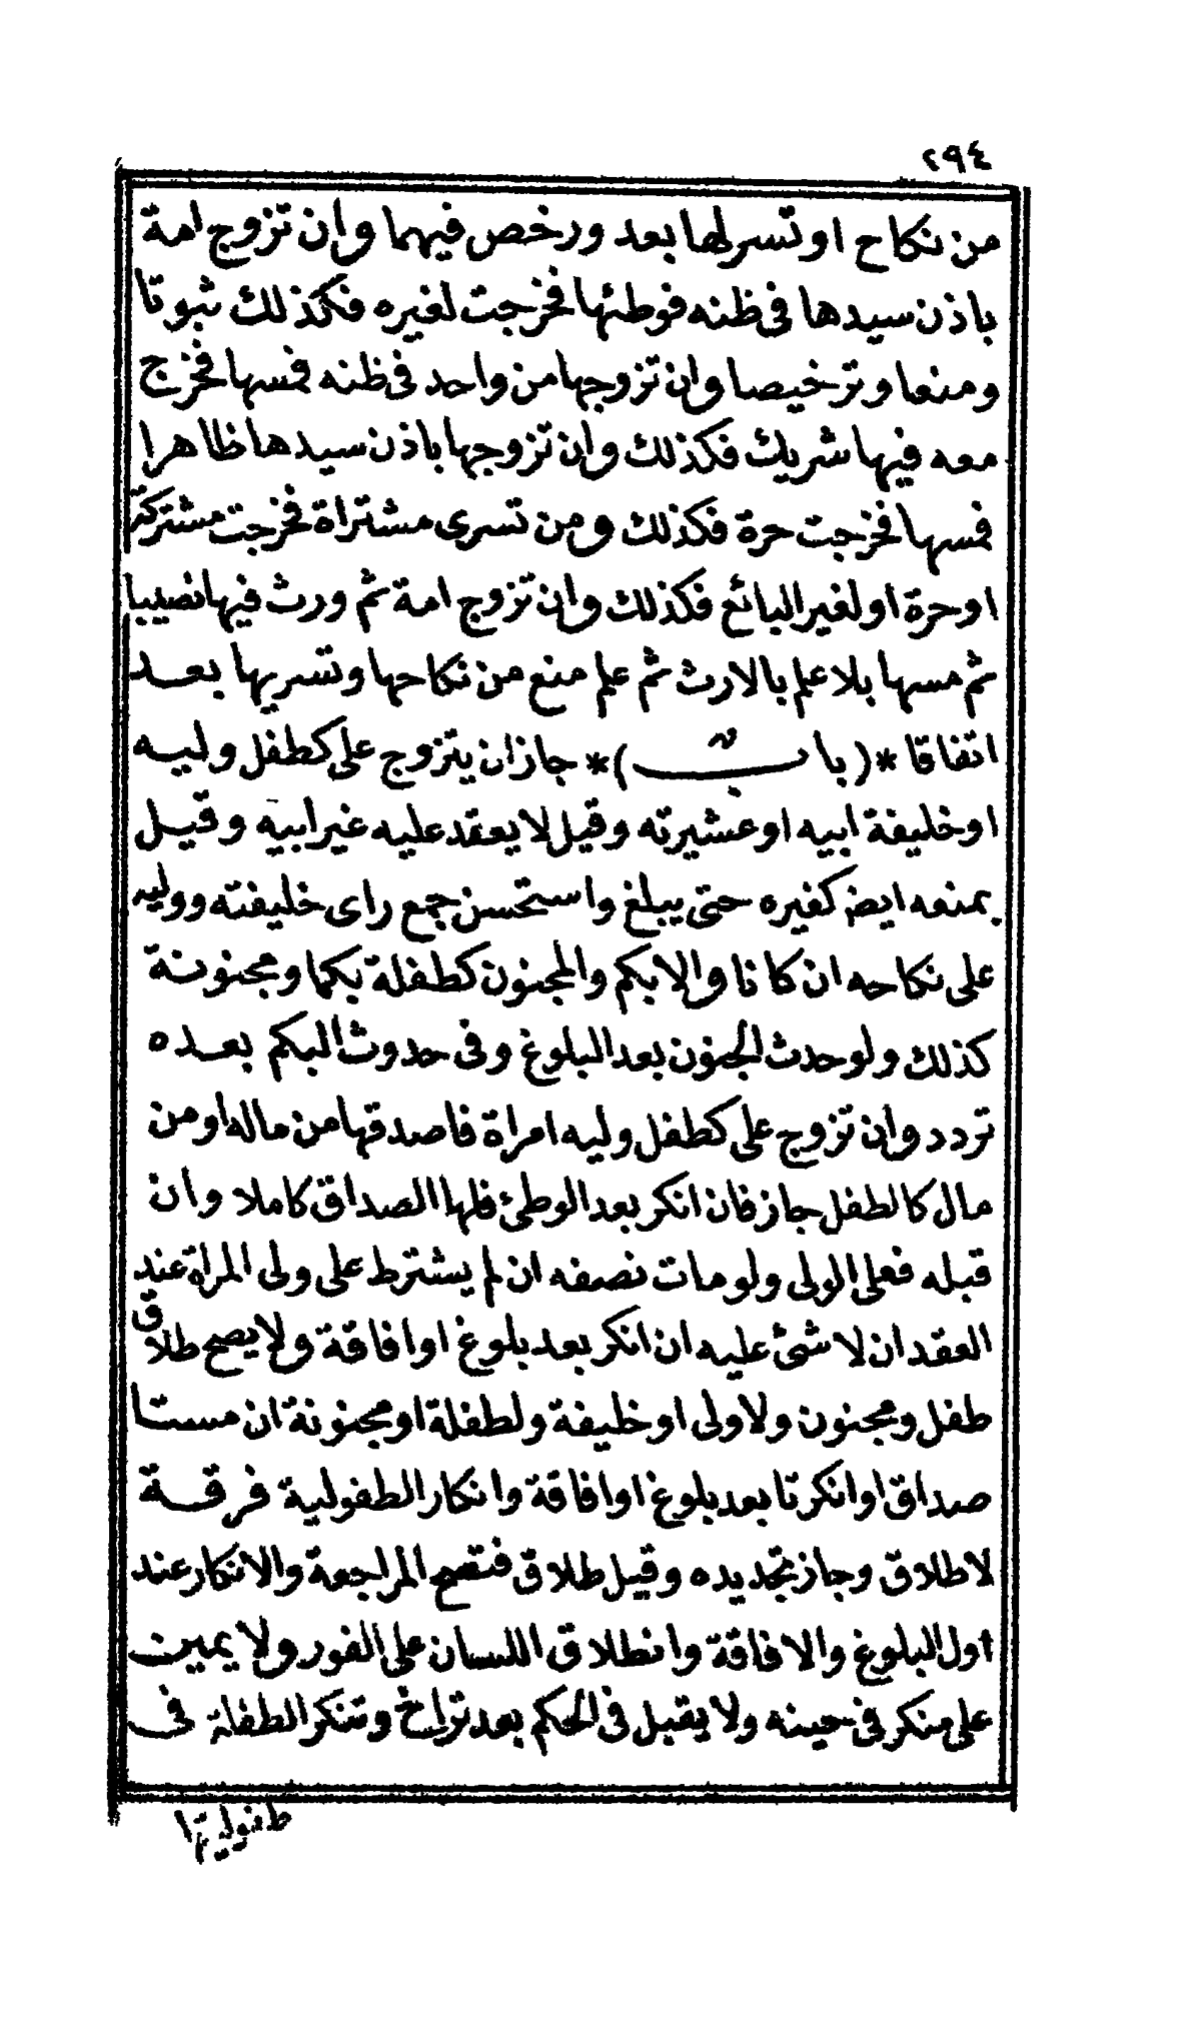 ٢٩٤
من نكاح او تسر لها بعد ورخص فيهما وان تزوج امة
باذن سيدها فى ظنه فوطئها فخرجت لغيره فكذلك ثبوتا
ومنعا وترخيصا وان تزوجها من واحد فى ظنه فمسها فخرج
معه فيها شريك فكذلك وان تزوجها باذن سيدها ظاهرا
فمسها فخرجت حرة فكذلك ومن تسرى مشتراة فخرجت مشتركة
او حرة او لغير البائع فكذلك وان تزوج امة ثم ورث فيها نصيبا
ثم مسها بلا علم بالارث ثم علم منع من نكاحها وتسريها بعد
اتفاقا *(باب)* جاز ان يتزوج على كطفل وليه
او خليفة ابيه او عشيرته وقيل لا يعقد عليه غير ابيه وقيل
بمنعه ايض كغيره حتى يبلغ واستحسن جمع راى خليفته ووليه
على نكاحه ان كانا والابكم والمجنون كطفلة بكما ومجنونة
كذلك ولو حدث الجنون بعد البلوغ وفى حدوث البكم بعده
تردد وان تزوج على كطفل وليه امراة فاصدقها من ماله او من
مال كالطفل جاز فان انكر بعد الوطئ فلها الصداق كاملا وان
قبله فعلى الولى ولو مات نصفه ان لم يشترط على ولى المراة عند
العقد ان لا شئ عليه ان انكر بعد بلوغ او افاقة ولا يصح طلاق
طفل ومجنون ولا ولى او خليفة ولطفلة او مجنونة ان مستا
صداق او انكرتا بعد بلوغ او افاقة وانكار الطفولية فرقة
لا طلاق وجاز تجديده وقيل طلاق فتصح المراجعة والانكار عند
اول البلوغ والافاقة وانطلاق اللسان على الفور ولا يمين
على منكر فى حينه ولا يقبل فى الحكم بعد تراخ وتنكر الطفلة فى
طفوليتها